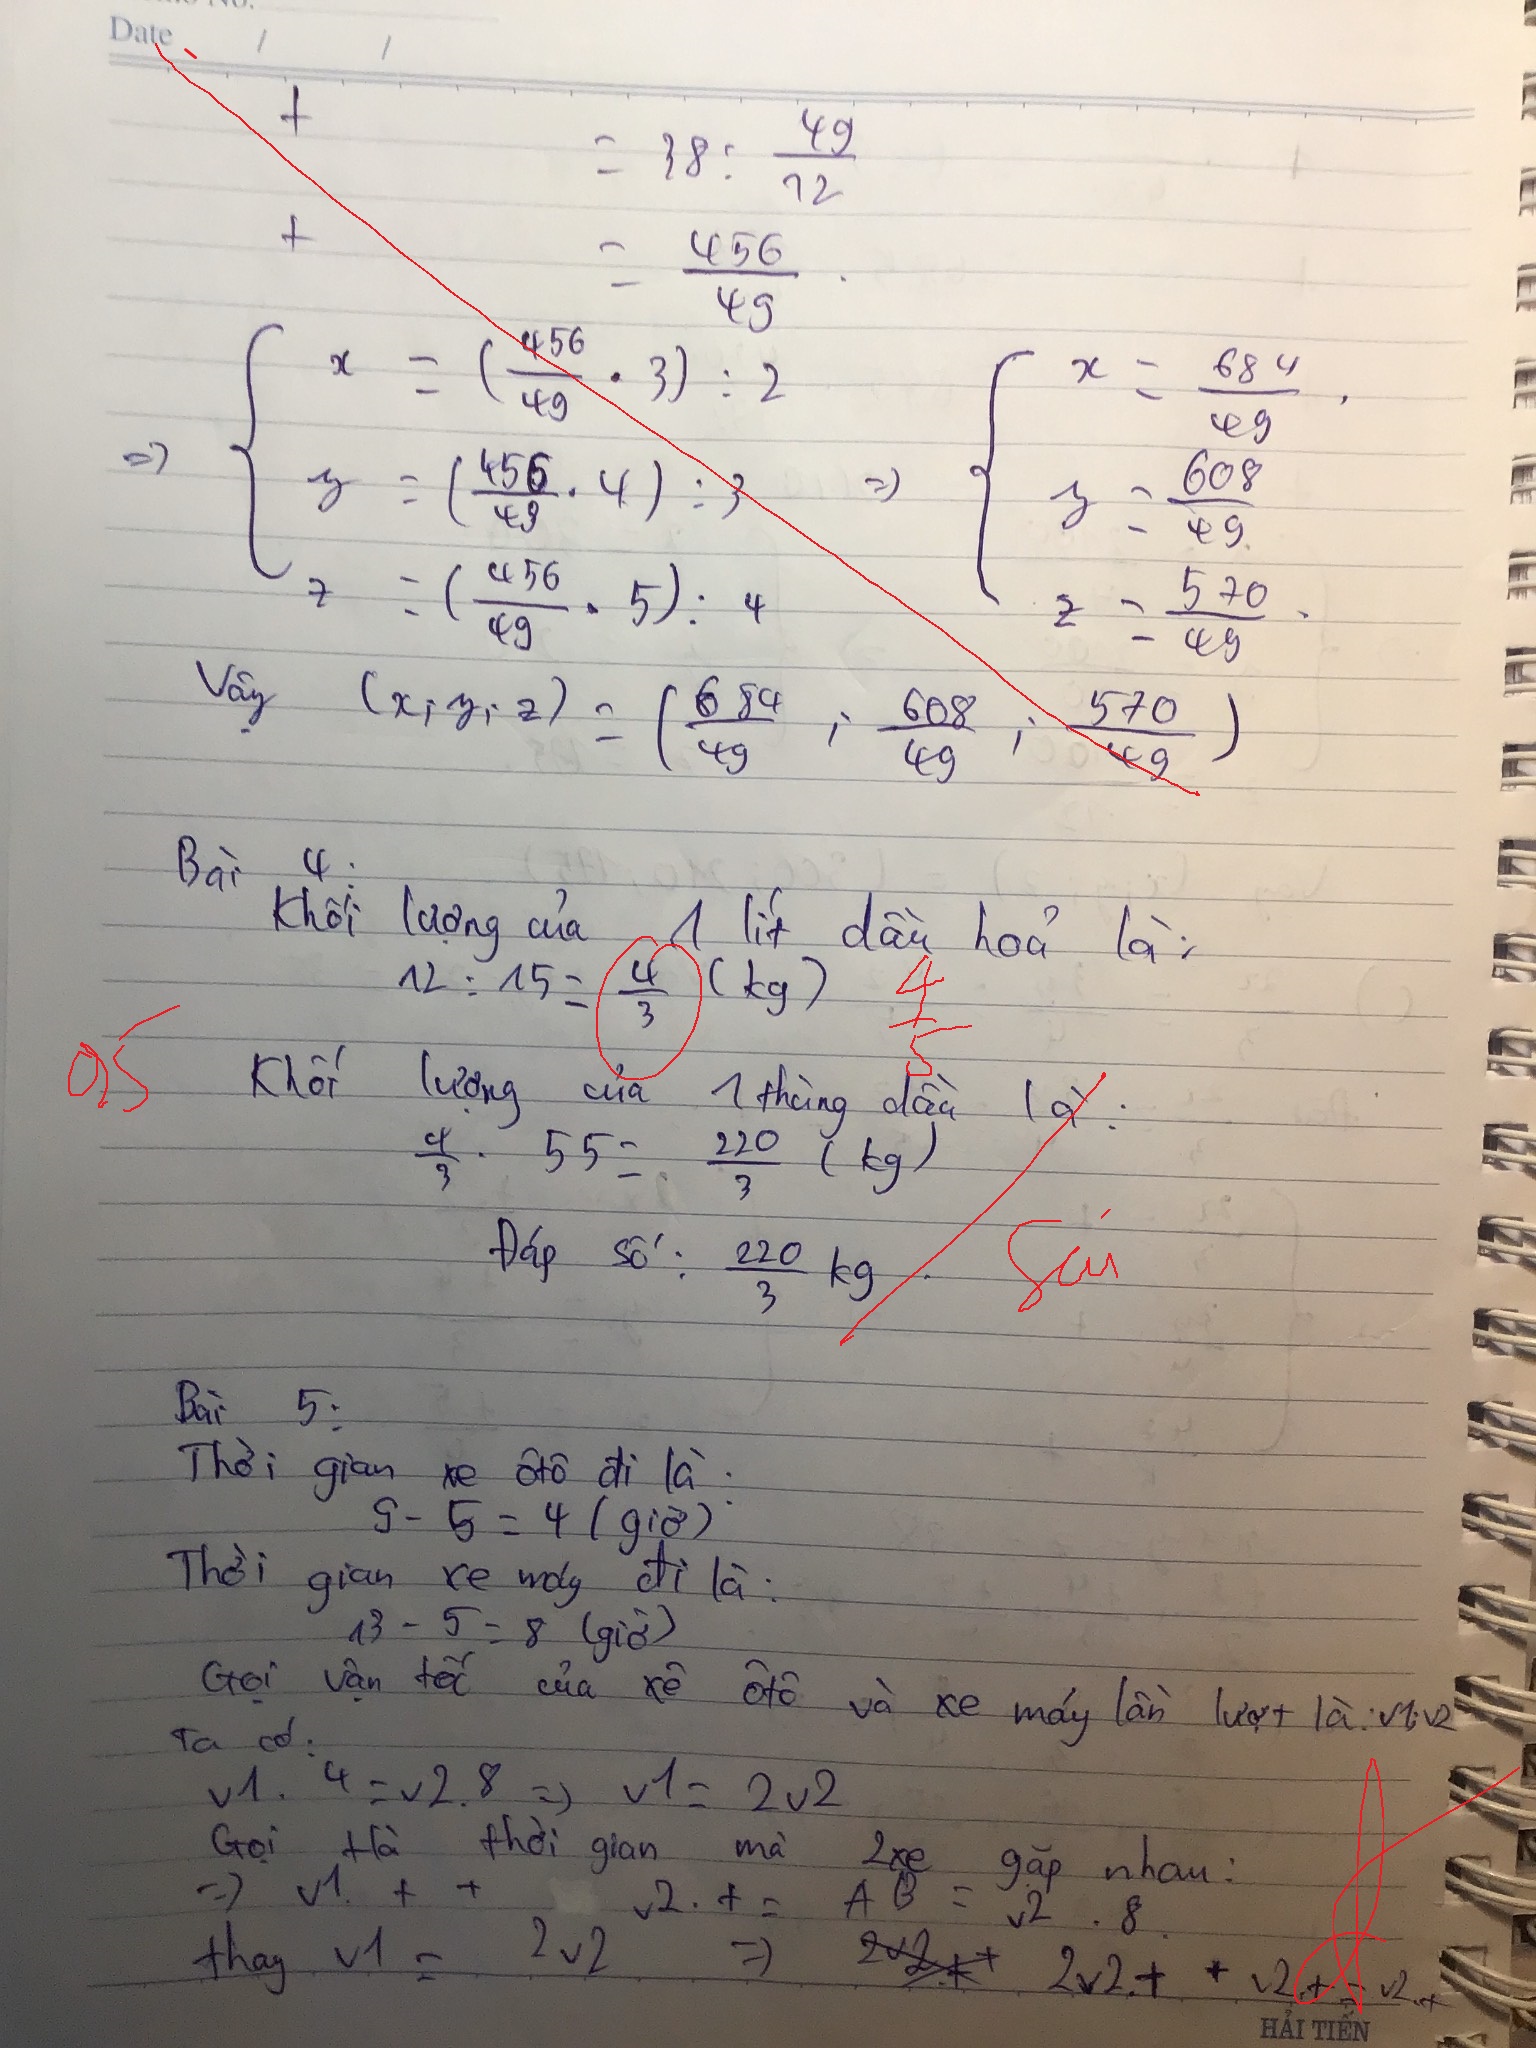 Date / /
+ = 38 : 49/12
+ = 456/49 .
=> { x = (456/49 . 3) : 2 => { x = 684/49 .
y = (456/49 . 4) : 3 y = 608/49
z = (456/49 . 5) : 4 z = 570/49 .
Vậy (x; y; z) = (684/49 ; 608/49 ; 570/49)
Bài 4:
Khối lượng của 1 lít dầu hoả là:
12 : 15 = 4/3 (kg) 4/5
0,5
Khối lượng của 1 thùng dầu là:
4/3 . 55 = 220/3 (kg)
Đáp số: 220/3 kg . Sai
Bài 5:
Thời gian xe ôtô đi là:
9 - 5 = 4 (giờ)
Thời gian xe máy đi là:
13 - 5 = 8 (giờ)
Gọi vận tốc của xê ôtô và xe máy lần lượt là: v1; v2
Ta có:
v1. 4 = v2.8 => v1 = 2v2
Gọi t là thời gian mà 2 xe gặp nhau:
=> v1. t + v2. t = AB = v2 . 8
thay v1 = 2v2 => 2v2.t + v2.t = v2.t
HẢI TIẾN